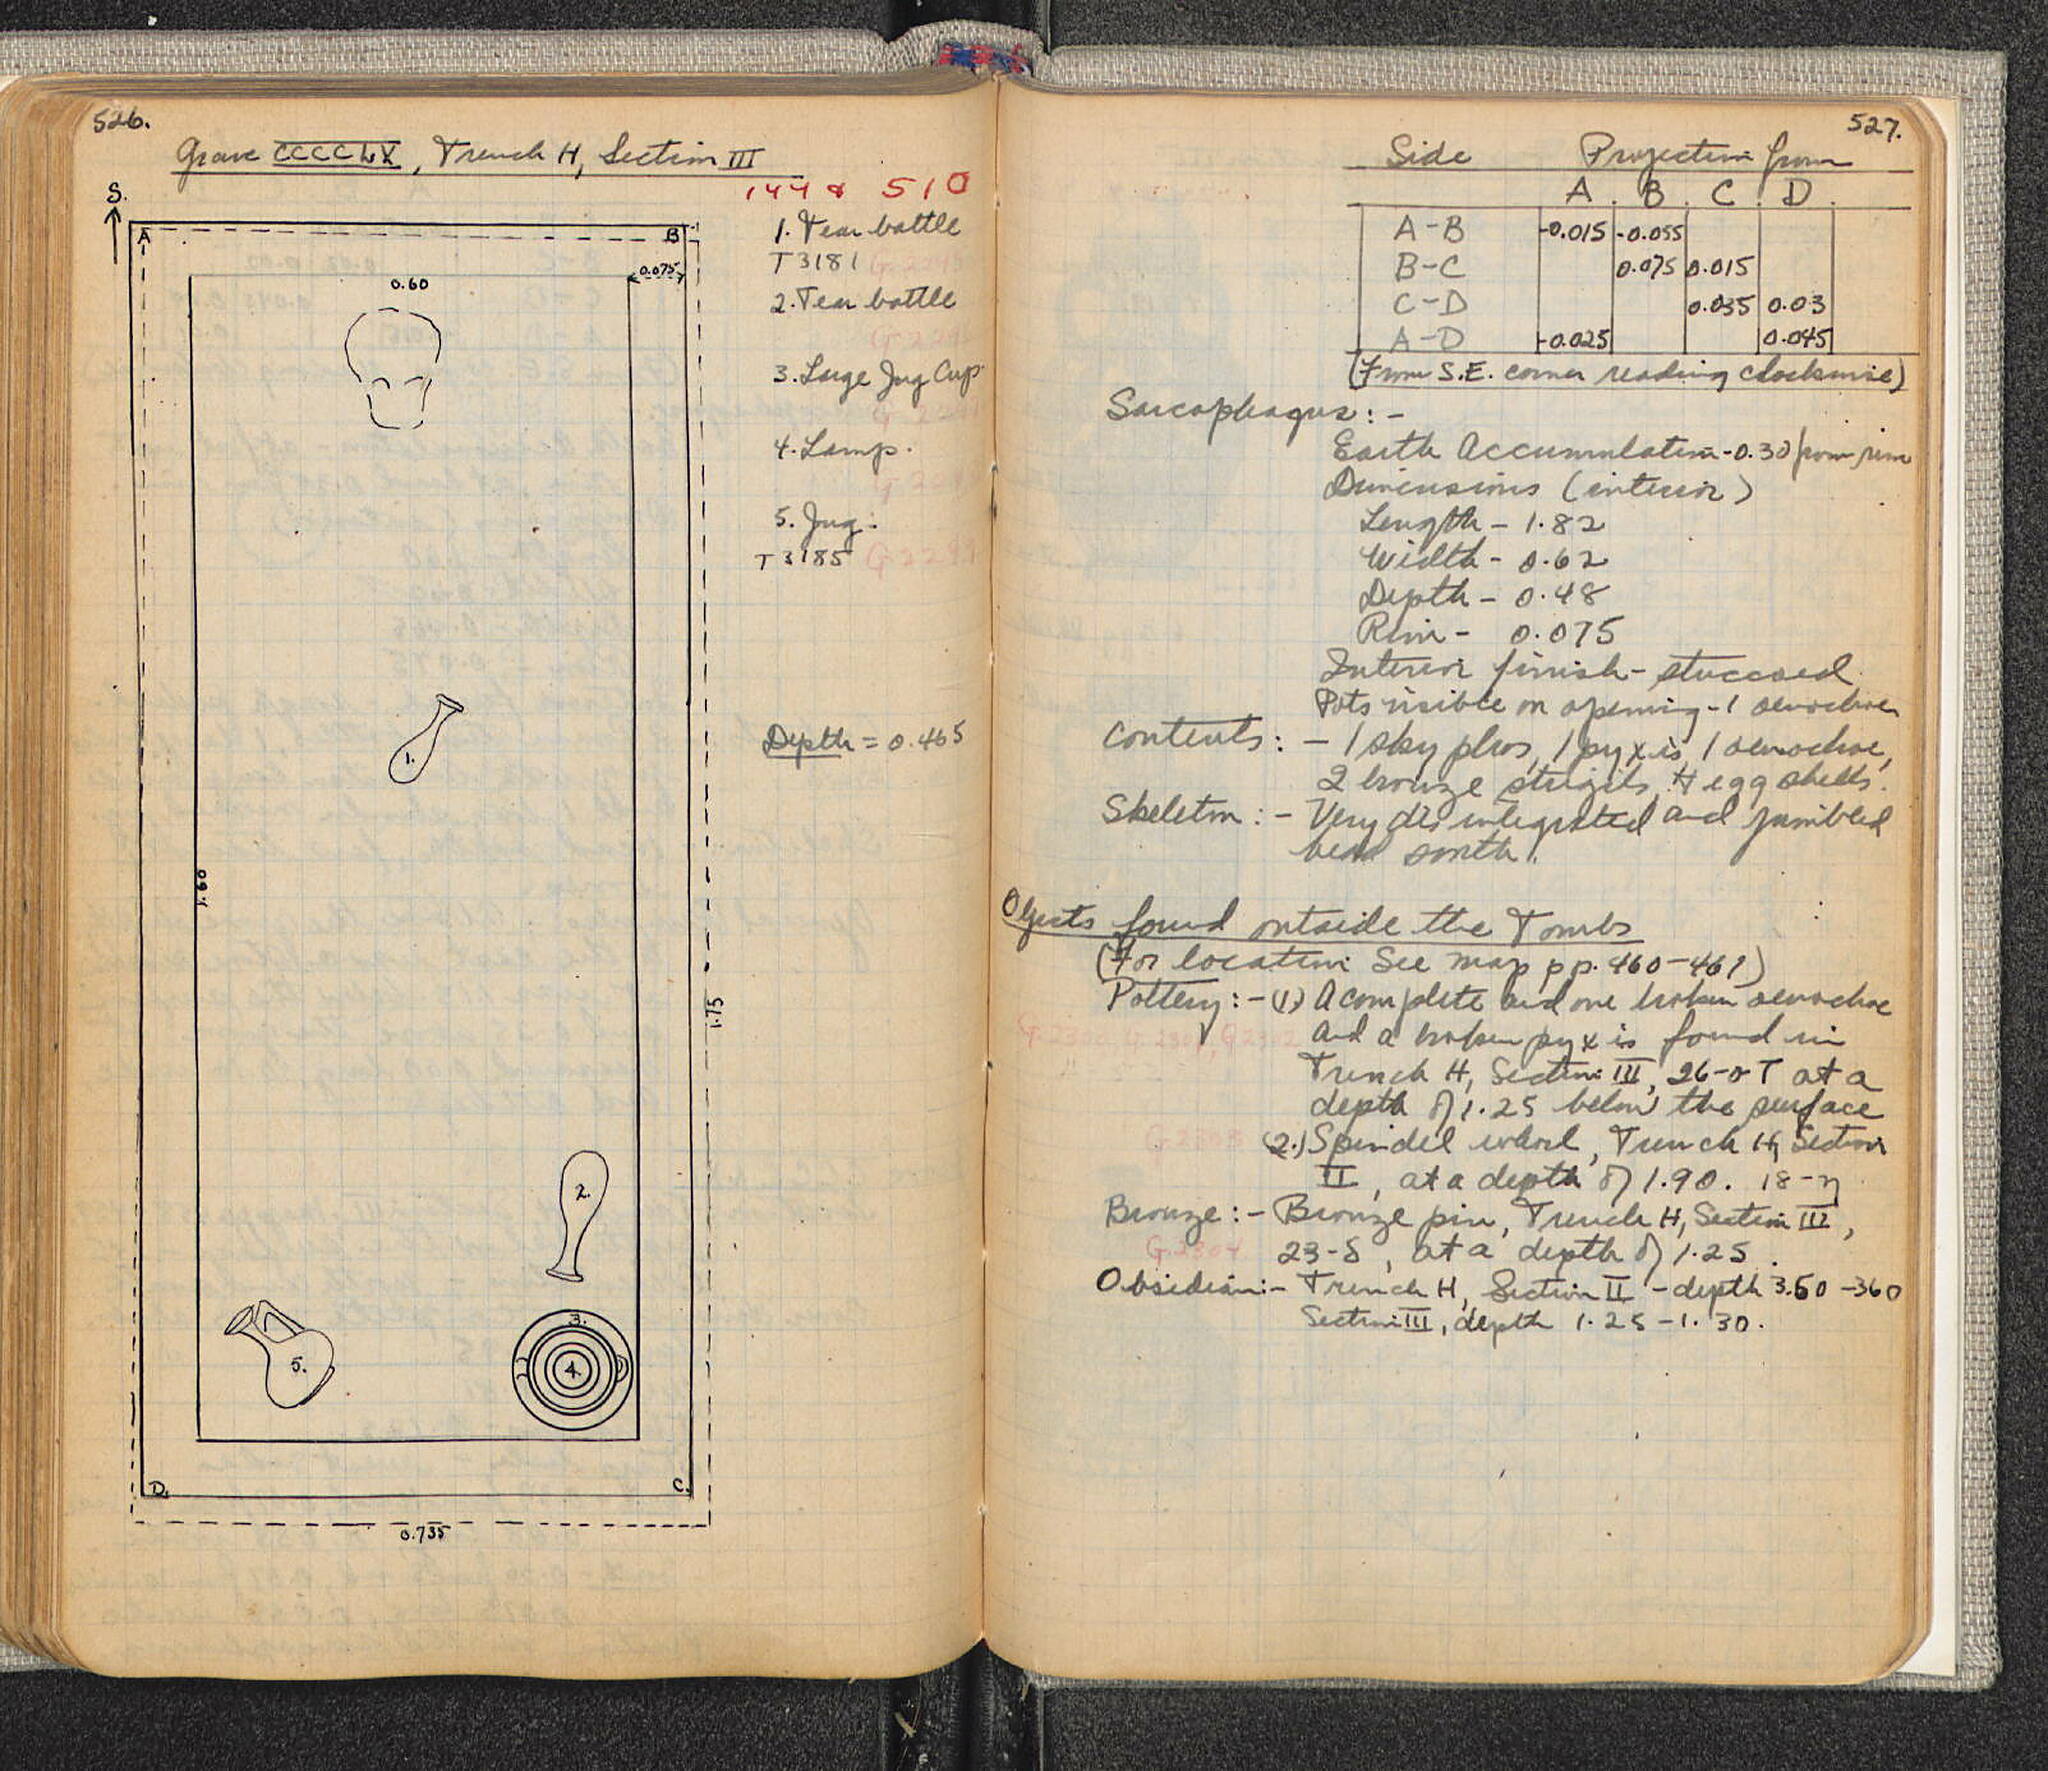 526.
Grave CCCCLX, Trench H, Section III
S.
1448 510
A
B
0.60
0.075
1. Tear bottle
T3181 G-2295
2. Tear bottle
G-2296
3. Large Jug Cup.
G-2297
4. Lamp.
G-2298
5. Jug.
T3185 G-2299
1.
Depth = 0.465
1.60
1.75
2.
3.
4.
5.
D.
C.
0.735
527.
Side Projection from
A. B. C. D.
A-B -0.015 -0.055
B-C 0.075 0.015
C-D 0.035 0.03
A-D -0.025 0.045
(From S.E. corner reading clockwise)
Sarcophagus: -
Earth Accumulation - 0.30 from rim
Dimensions (interior)
Length - 1.82
Width - 0.62
Depth - 0.48
Rim - 0.075
Interior finish - stuccoed
Pots visible on opening - 1 oenochoe
Contents: - 1 skyphos, 1 pyxis, 1 oenochoe,
2 bronze strigils, # egg shells.
Skeleton: - Very disintegrated and jumbled
head south.
Objects found outside the Tombs
(For location See map pp. 460-461)
Pottery: - (1) A complete and one broken oenochoe
G-2300, G-2301, G-2302 and a broken pyxis found in
Trench H, Section III, 26-σT at a
depth of 1.25 below the surface
G-2303 (2.) Spindel whorl, Trench H, Section
II, at a depth of 1.90. 18-η
Bronze: - Bronze pin, Trench H, Section III,
G-2304 23-δ, at a depth of 1.25.
Obsidian: - Trench H, Section II - depth 3.50 - 360
Section III, depth 1.25 - 1.30.